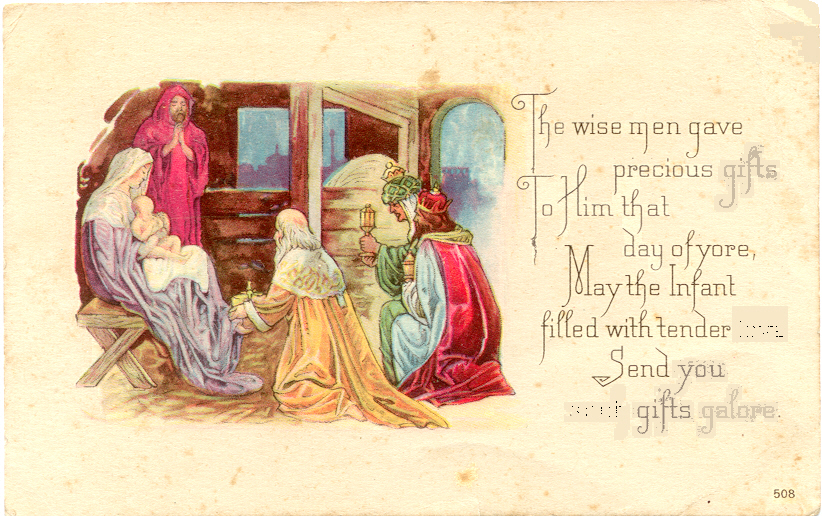 The wise men gave
precious gifts
To Him that
day of yore,
May the Infant
filled with tender
Send you
gifts galore.
508